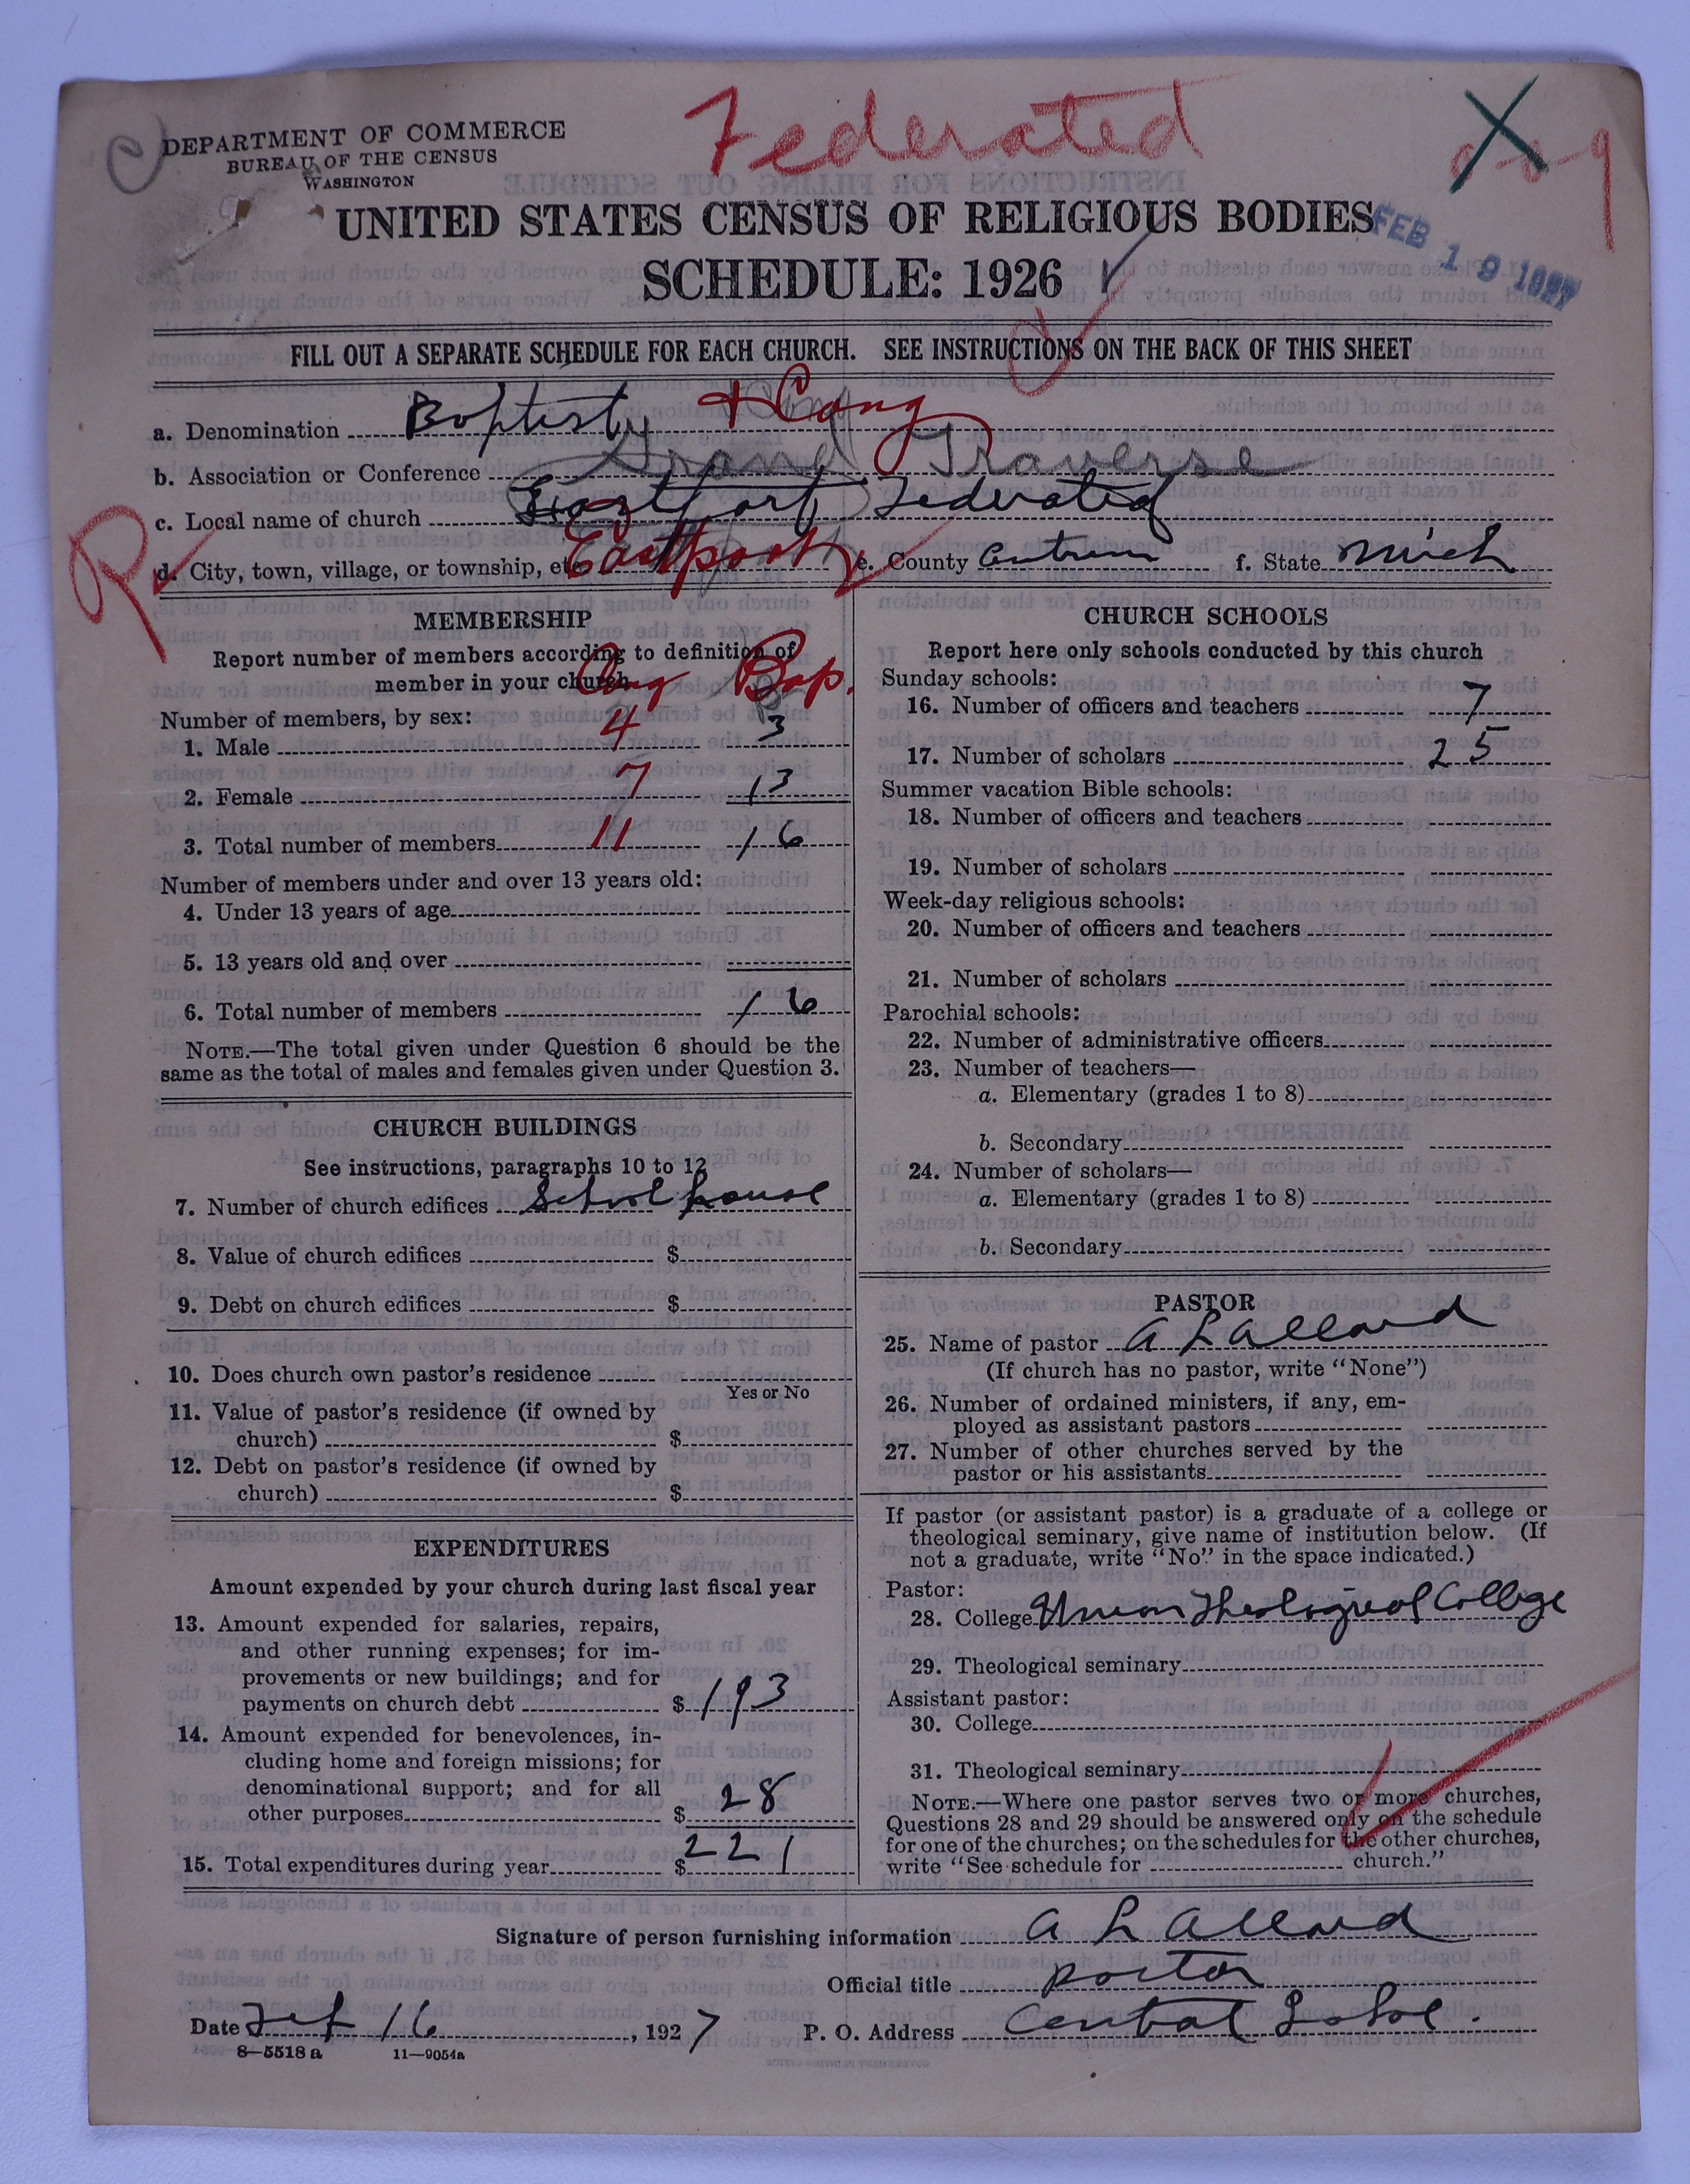 Federated
X
DEPARTMENT OF COMMERCE
BUREAU OF THE CENSUS
WASHINGTON
UNITED STATES CENSUS OF RELIGIOUS BODIES
FEB 19 1927
SCHEDULE: 1926
FILL OUT A SEPARATE SCHEDULE FOR EACH CHURCH. SEE INSTRUCTIONS ON THE BACK OF THIS SHEET
a. Denomination Baptist + Cong
b. Association or Conference Grand Traverse
c. Local name of church Eastport Federated
d. City, town, village, or township, etc. Eastport e. County Antrim f. State Mich
MEMBERSHIP
Report number of members according to definition of
member in your church
Cong Bap.
Number of members, by sex:
1. Male 4 3
2. Female 7 13
3. Total number of members 11 16
Number of members under and over 13 years old:
4. Under 13 years of age
5. 13 years old and over
6. Total number of members 16
NOTE.—The total given under Question 6 should be the
same as the total of males and females given under Question 3.
CHURCH BUILDINGS
See instructions, paragraphs 10 to 12
7. Number of church edifices School house
8. Value of church edifices $
9. Debt on church edifices $
10. Does church own pastor's residence
Yes or No
11. Value of pastor's residence (if owned by
church) $
12. Debt on pastor's residence (if owned by
church) $
EXPENDITURES
Amount expended by your church during last fiscal year
13. Amount expended for salaries, repairs,
and other running expenses; for im-
provements or new buildings; and for
payments on church debt $ 193
14. Amount expended for benevolences, in-
cluding home and foreign missions; for
denominational support; and for all
other purposes $ 28
15. Total expenditures during year $ 221
CHURCH SCHOOLS
Report here only schools conducted by this church
Sunday schools:
16. Number of officers and teachers 7
17. Number of scholars 25
Summer vacation Bible schools:
18. Number of officers and teachers
19. Number of scholars
Week-day religious schools:
20. Number of officers and teachers
21. Number of scholars
Parochial schools:
22. Number of administrative officers
23. Number of teachers—
a. Elementary (grades 1 to 8)
b. Secondary
24. Number of scholars—
a. Elementary (grades 1 to 8)
b. Secondary
PASTOR
25. Name of pastor A L Allard
(If church has no pastor, write "None")
26. Number of ordained ministers, if any, em-
ployed as assistant pastors
27. Number of other churches served by the
pastor or his assistants
If pastor (or assistant pastor) is a graduate of a college or
theological seminary, give name of institution below. (If
not a graduate, write "No" in the space indicated.)
Pastor:
28. College Union Theological College
29. Theological seminary
Assistant pastor:
30. College
31. Theological seminary
NOTE.—Where one pastor serves two or more churches,
Questions 28 and 29 should be answered only on the schedule
for one of the churches; on the schedules for the other churches,
write "See schedule for church."
Signature of person furnishing information A L Allard
Official title pastor
Date Feb 16, 1927 P. O. Address Central Lake.
8—5518 a 11—9054a